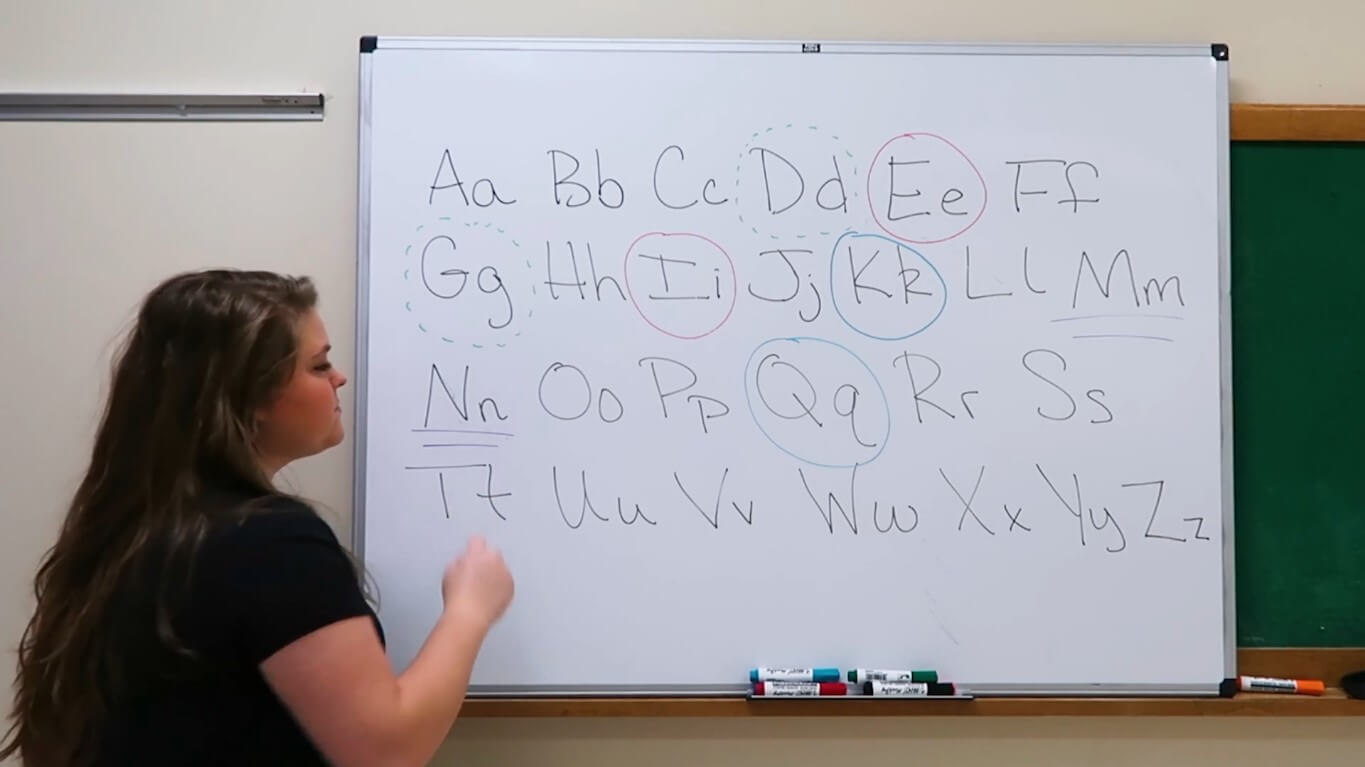 Aa Bb Cc Dd Ee Ff
Gg Hh Ii Jj Kk Ll Mm
Nn Oo Pp Qq Rr Ss
Tt Uu Vv Ww Xx Yy Zz